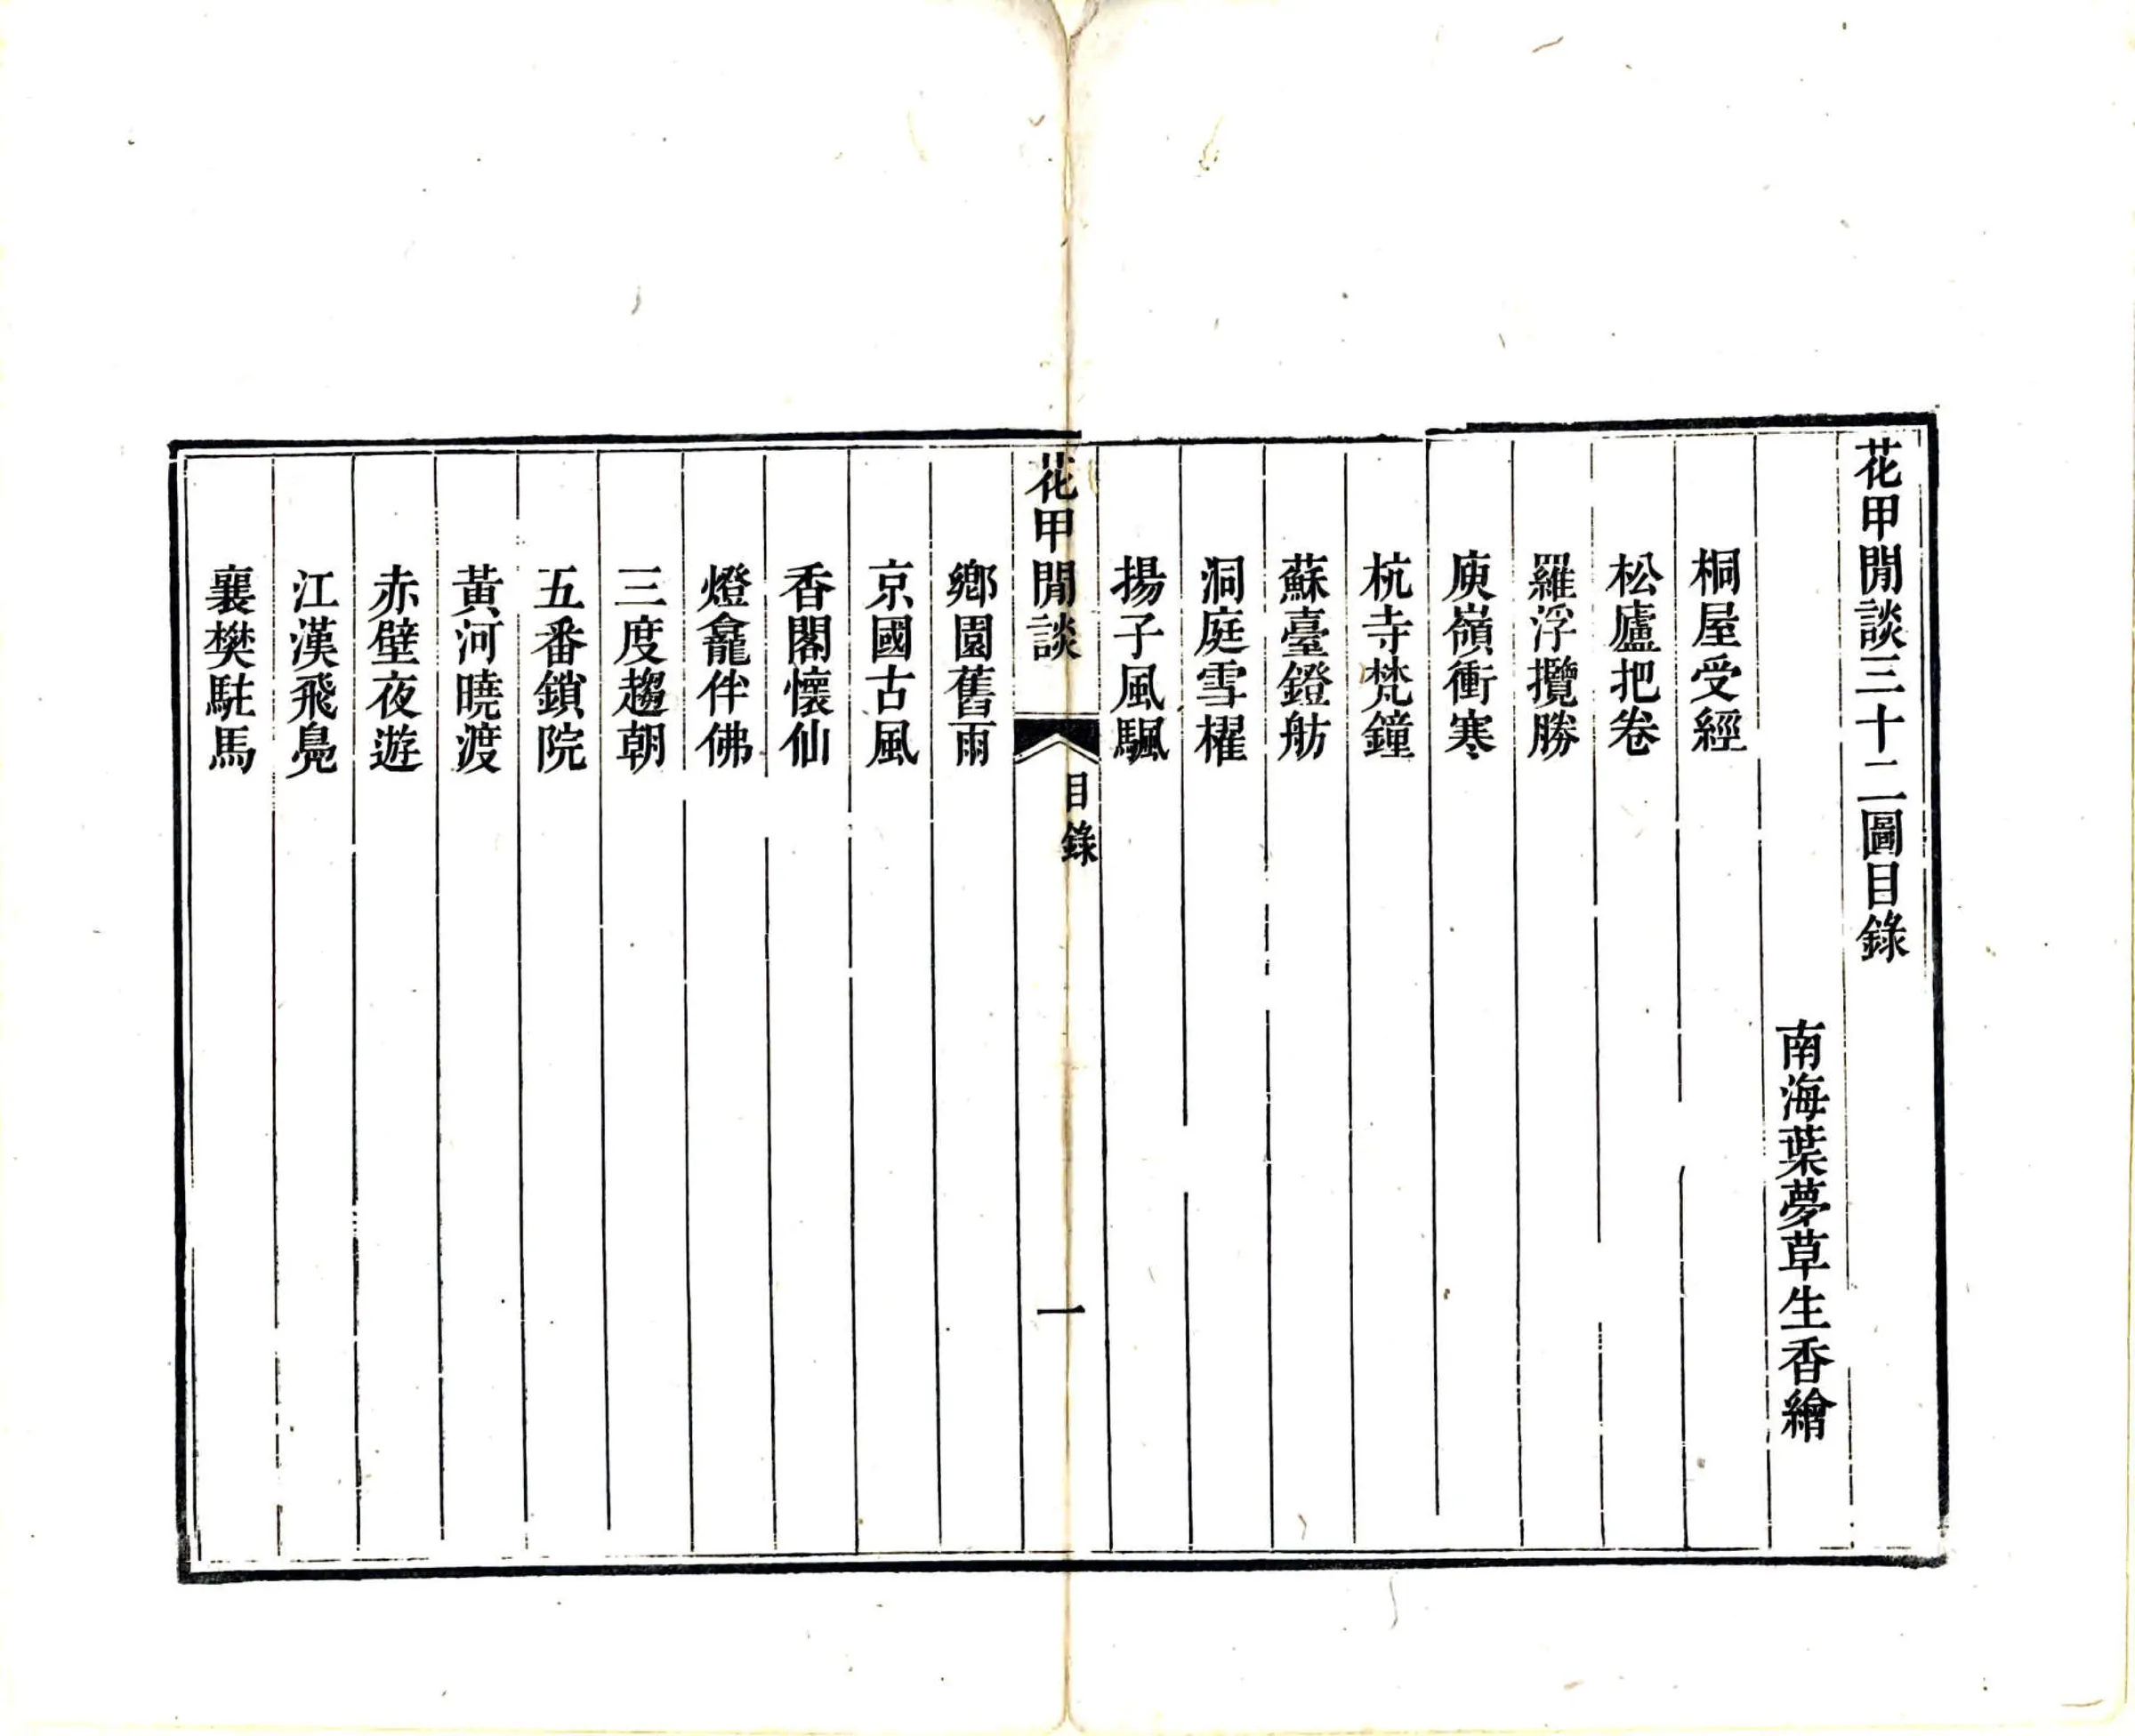 花甲閒談三十二圖目錄
南海葉夢草生香繪
桐屋受經
松廬把卷
羅浮攬勝
庾嶺衝寒
杭寺梵鐘
蘇臺鐙舫
洞庭雪櫂
揚子風颿
花甲閒談
目錄
一
鄉園舊雨
京國古風
香閣懷仙
燈龕伴佛
三度趨朝
五番鎖院
黃河曉渡
赤壁夜遊
江漢飛鳧
襄樊駐馬